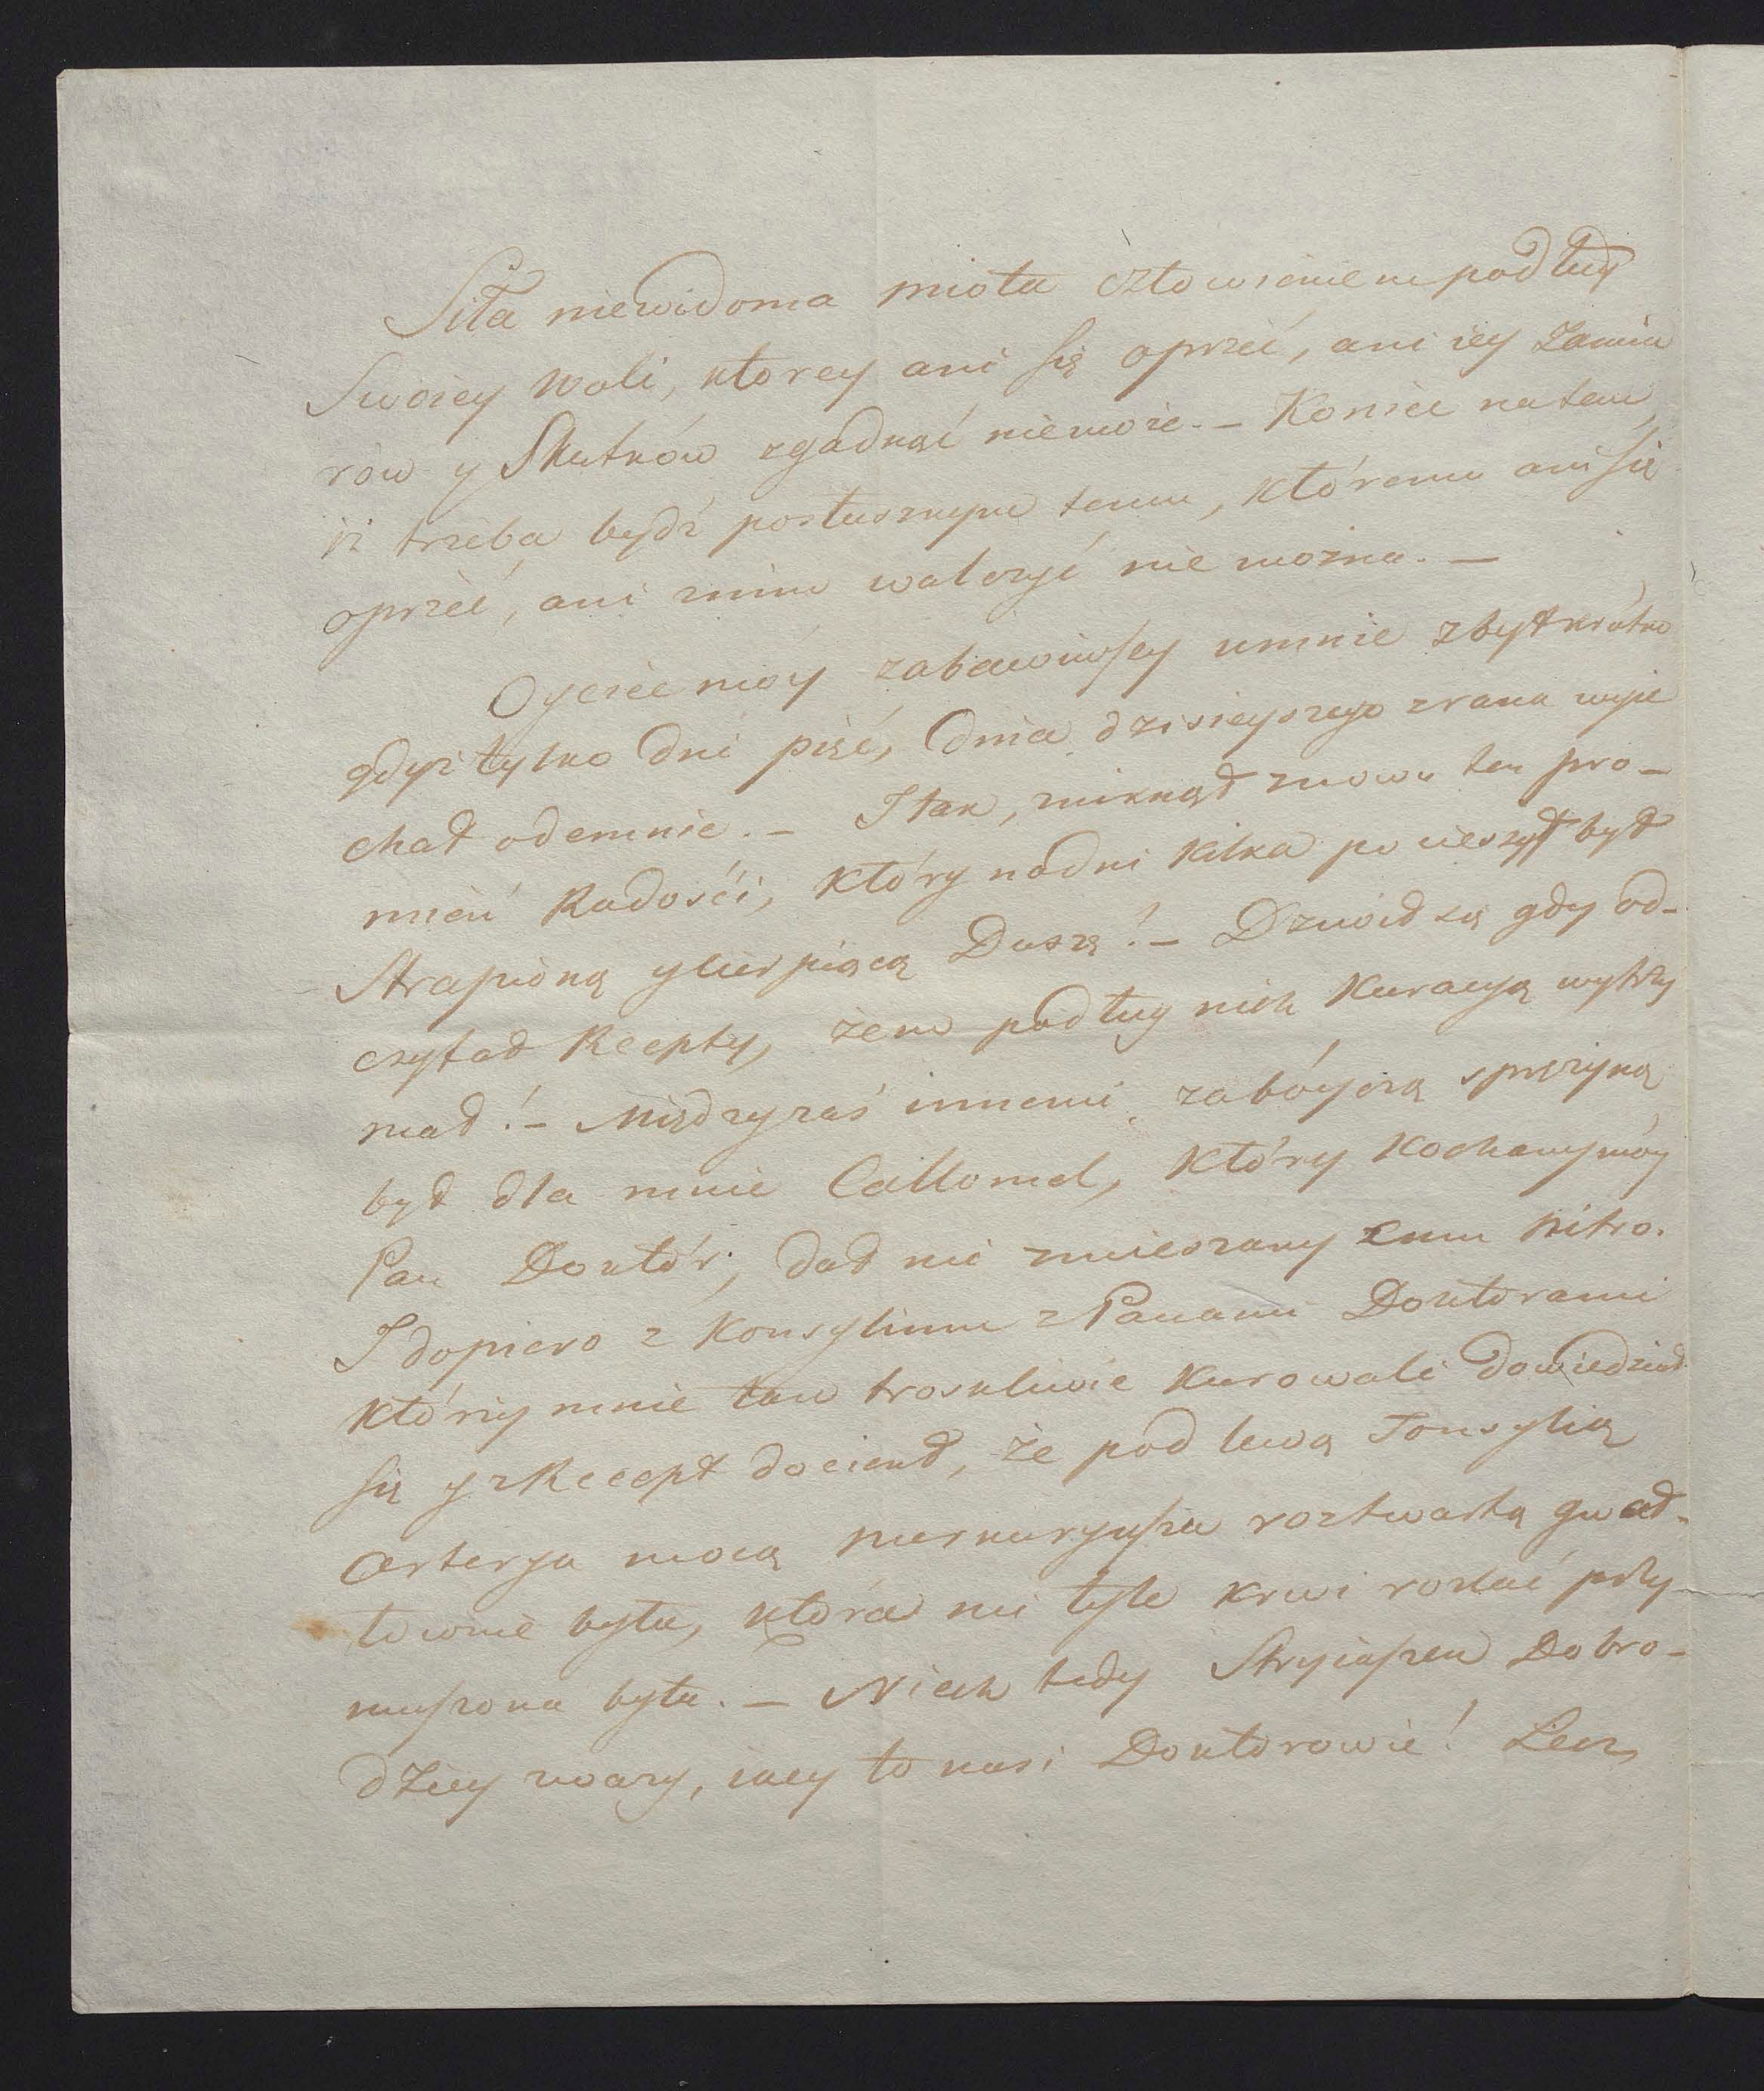 Siła niewidoma miota człowiekiem podług
Swoiey woli, ktorey ani się oprzeć, ani iey Zamia
row y Skutków zgadnąć niemoże. — Koniec na tem,
iż trzeba bydź posłusznym temu, któremu ani się
oprzeć, ani znim walczyć nie można. —
Oyciec moy zabawiwszy umnie zbyt krótko
gdyż tylko dni pięć, dnia dzisieyszego zrana wyie
chał odemnie. — I tak, zniknął znowu ten pro-
mień Radości, który nadni kilka pocieszył był
Strapioną y cierpiącą Duszę! — Drwiał się gdy od-
czytał Recepty, żem podług nich Kuracyą wytrzy
mał! — Między zaś innemi zabóyczą sprężyną
był dla mnie Callomel, który Kochany móy
Pan Doktór, dał mi zmieszany cum Nitro.
I dopiero z Konsylium z Panami Doktorami
którzy mnie tam troskliwie kurowali dowiedział
się y z Recept dociekł, że pod lewą Tonsylią
Arterya mocą merkuryusza roztwartą gwał-
townie była, która mi tyle krwi rozlać przy
muszona była. — Niech tedy Stryiaszek Dobro-
dziey zważy, iacy to nasi Doktorowie! Lecz